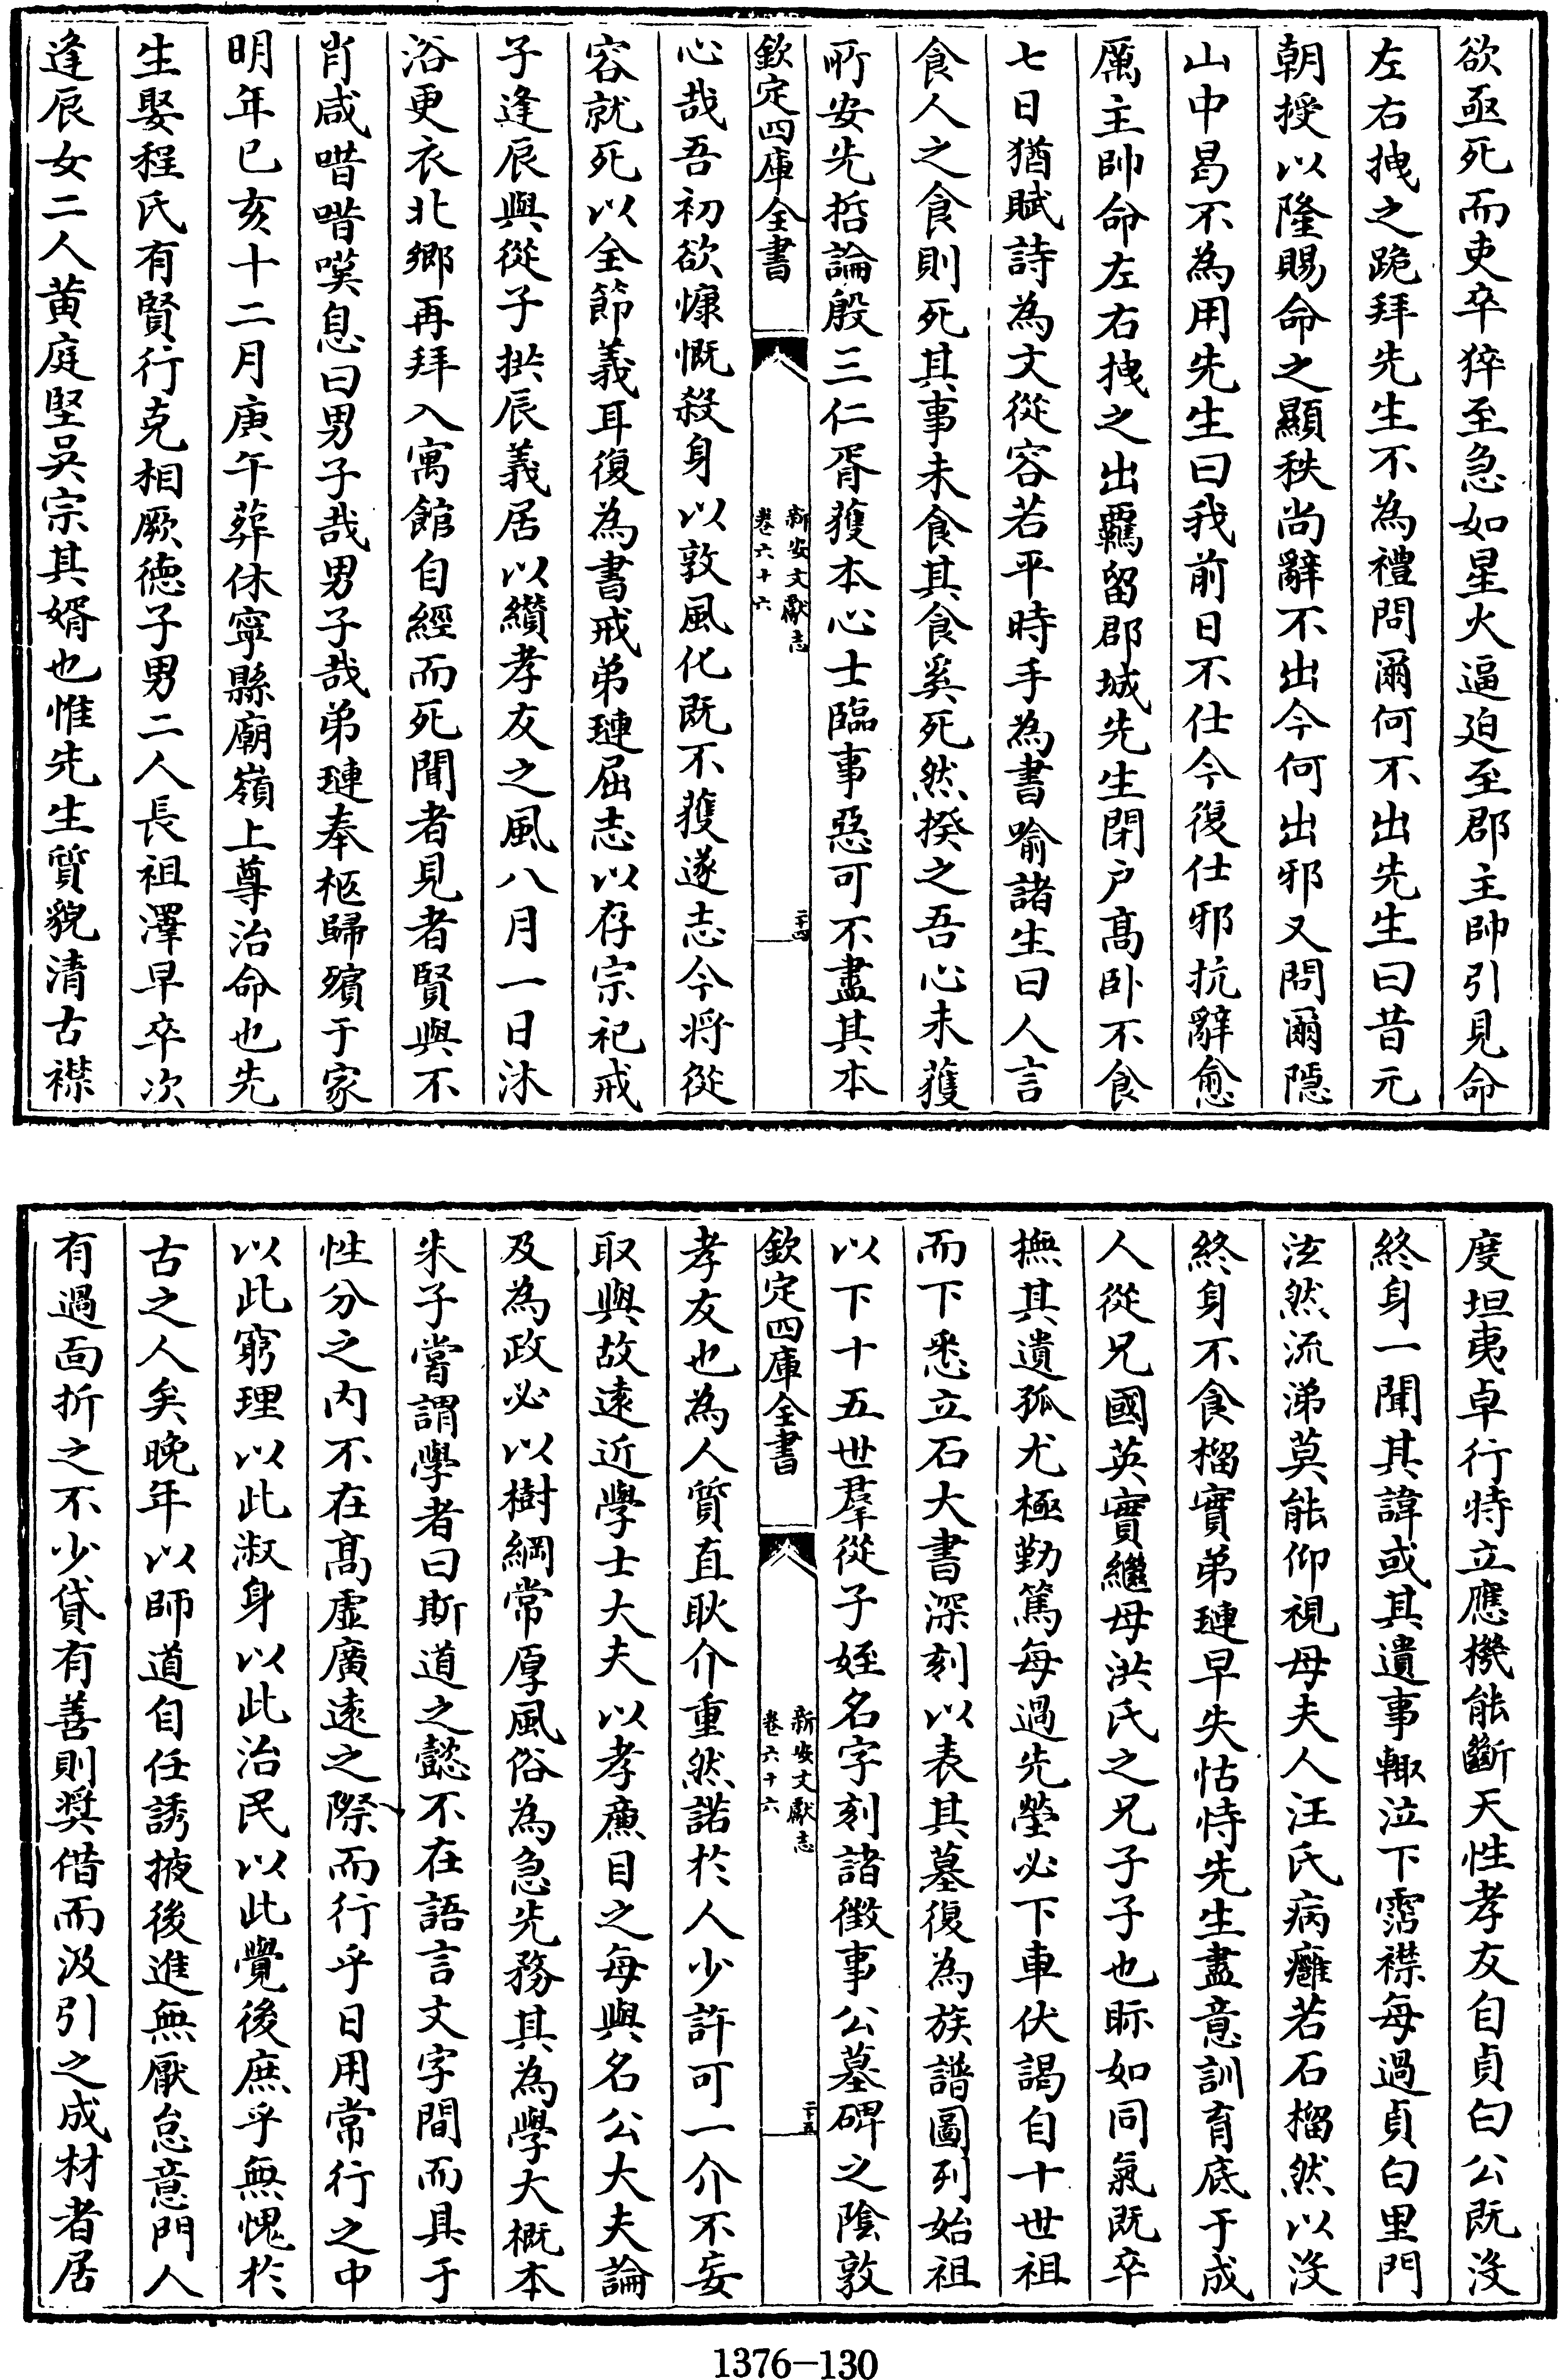 欲亟死而吏卒猝至急如星火逼迫至郡主帥引見命
左右拽之跪拜先生不為禮問爾何不出先生曰昔元
朝授以隆賜命之顯秩尚辭不出今何出邪又問爾隱
山中曷不為用先生曰我前日不仕今復仕邪抗辭愈
厲主帥命左右拽之出羈留郡城先生閉户髙卧不食
七日猶賦詩為文從容若平時手為書喻諸生曰人言
食人之食則死其事未食其食奚死然揆之吾心未獲
所安先哲論殷三仁胥獲本心士臨事惡可不盡其本
欽定四庫全書
新安文獻志
卷六十六
二十四
心哉吾初欲慷慨殺身以敦風化既不獲遂志今將從
容就死以全節義耳復為書戒弟璉屈志以存宗祀戒
子逢辰與從子拱辰義居以纘孝友之風八月一日沐
浴更衣北鄉再拜入寓館自經而死聞者見者賢與不
肖咸唶唶嘆息曰男子哉男子哉弟璉奉柩歸殯于家
明年已亥十二月庚午葬休寧縣廟嶺上尊治命也先
生娶程氏有賢行克相厥徳子男二人長祖澤早卒次
逢辰女二人黄庭堅吳宗其婿也惟先生質貌清古襟
度坦夷卓行特立應機能斷天性孝友自貞白公既沒
終身一聞其諱或其遺事輙泣下霑襟每過貞白里門
泫然流涕莫能仰視母夫人汪氏病癰若石榴然以沒
終身不食榴實弟璉早失怙恃先生盡意訓育底于成
人從兄國英實繼母洪氏之兄子子也眎如同氣既卒
撫其遺孤尤極勤篤每過先塋必下車伏謁自十世祖
而下悉立石大書深刻以表其墓復為族譜圖列始祖
以下十五世羣從子姪名字刻諸徵事公墓碑之陰敦
欽定四庫全書
新安文獻志
卷六十六
二十五
孝友也為人質直耿介重然諾於人少許可一介不妄
取與故遠近學士大夫以孝亷目之每與名公大夫論
及為政必以樹綱常厚風俗為急先務其為學大概本
朱子嘗謂學者曰斯道之懿不在語言文字間而具于
性分之内不在髙虚廣遠之際而行乎日用常行之中
以此窮理以此淑身以此治民以此覺後庶乎無愧於
古之人矣晚年以師道自任誘掖後進無厭怠意門人
有過面折之不少貸有善則奬借而汲引之成材者居
1376-130